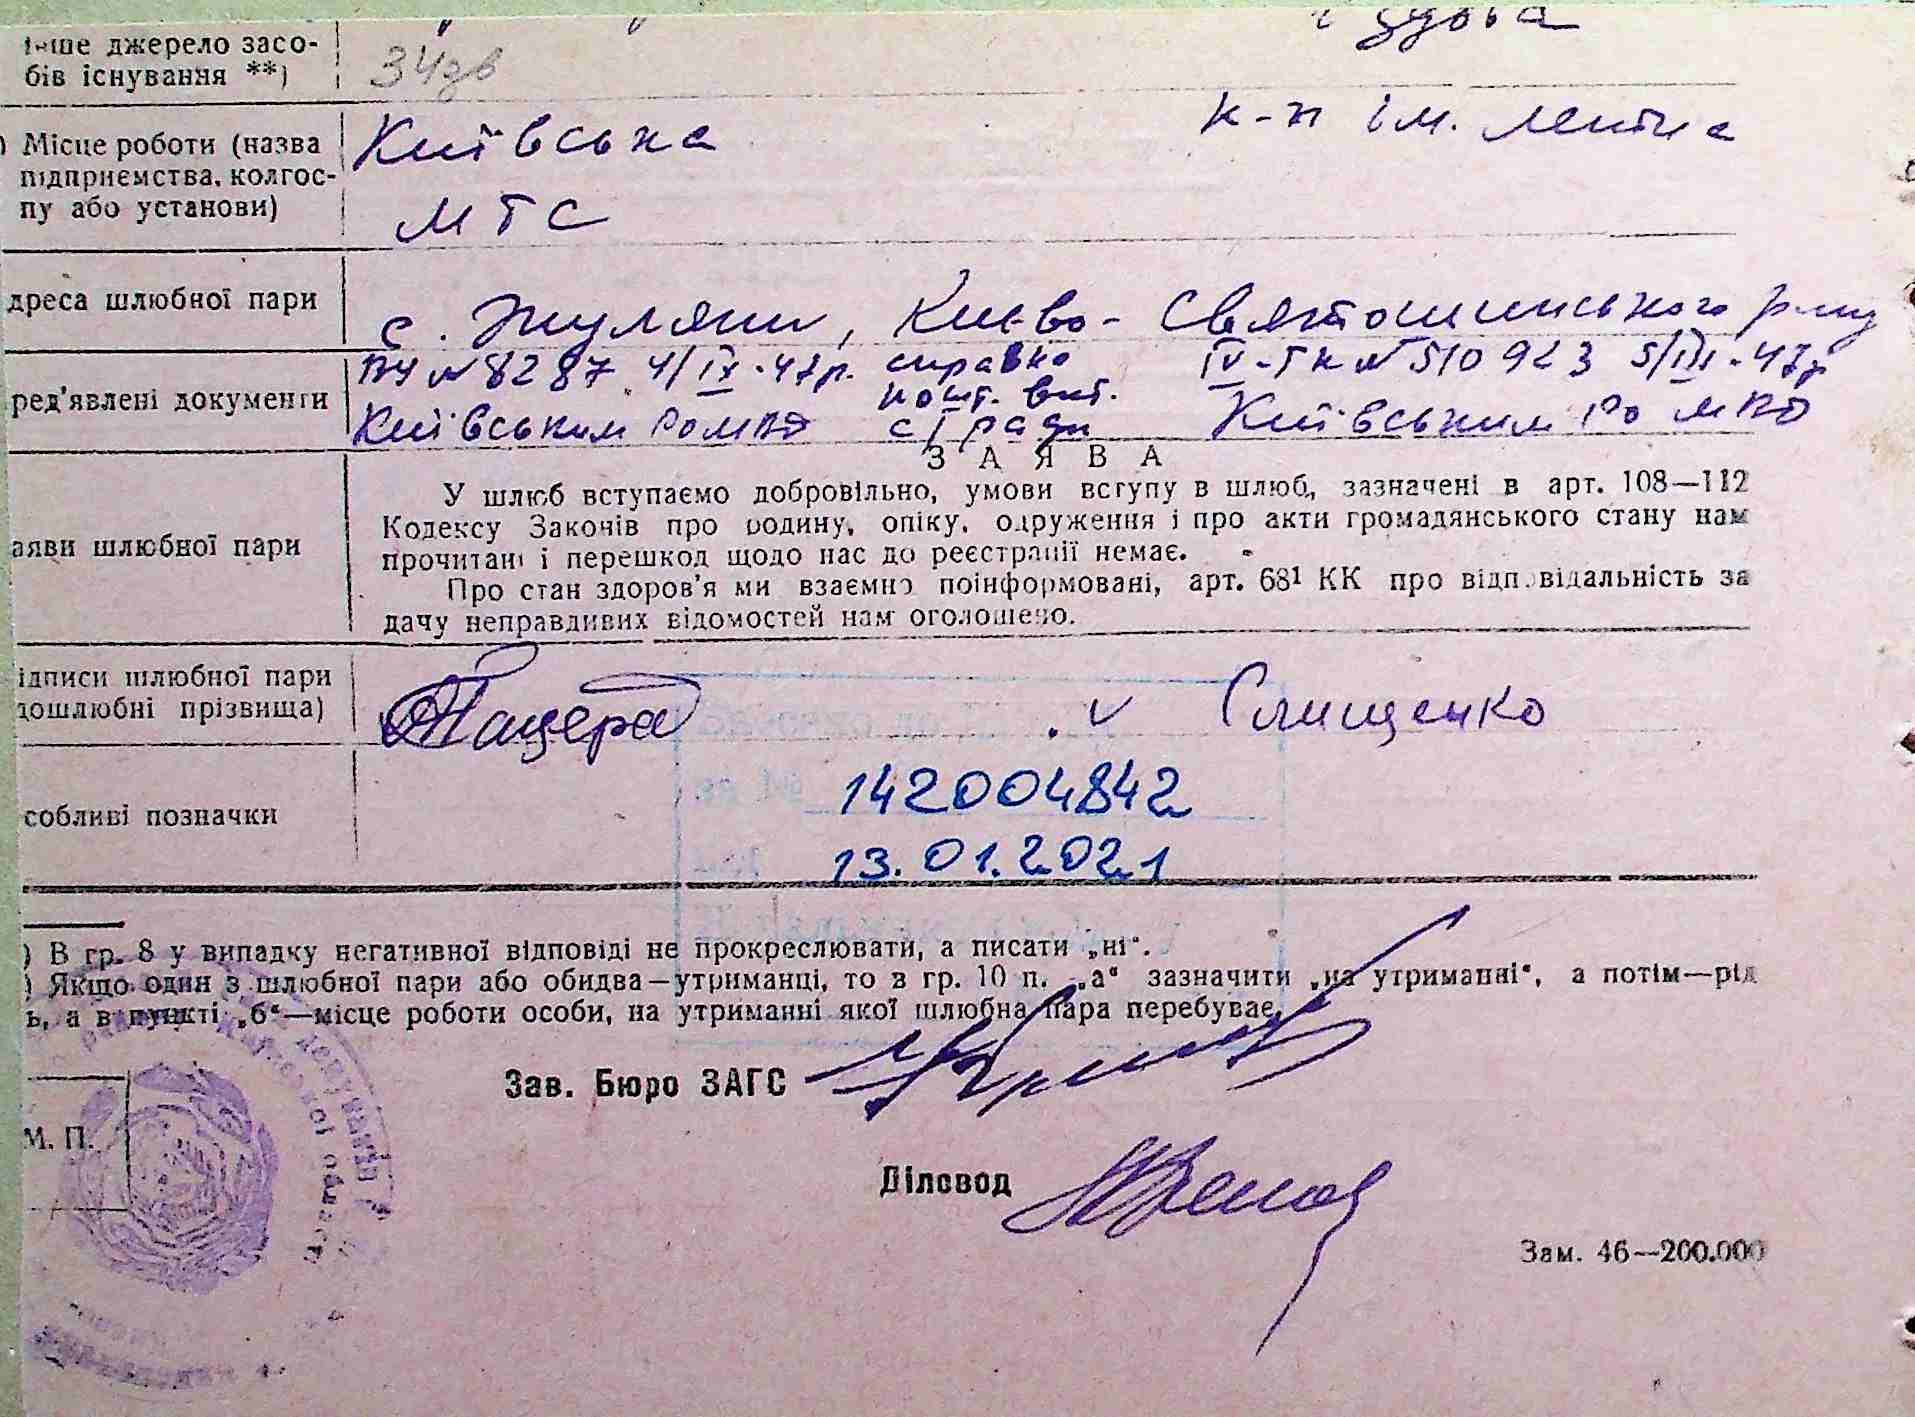 інше джерело засо-
бів існування **)
к-п ім. Леніна
) Місце роботи (назва
підприємства, колгос-
пу або установи)
Київська
МТС
дреса шлюбної пари
с. Жуляни, Києво-Святошинського р-ну
ред'явлені документи
№ 8287 4/ІХ-47р. справка ІV-ТК № 510923 5/ІІІ-47р
Київським РОМВД с/ради Київським РО МВД
ЗАЯВА
аяви шлюбної пари
У шлюб вступаємо добровільно, умови вступу в шлюб, зазначені в арт. 108—112
Кодексу Законів про родину, опіку, одруження і про акти громадянського стану нам
прочитані і перешкод щодо нас до реєстрації немає.
Про стан здоров'я ми взаємно поінформовані, арт. 68¹ КК про відповідальність за
дачу неправдивих відомостей нам оголошено.
ідписи шлюбної пари
дошлюбні прізвища)
Пацера Слищенко
собливі позначки
142004842
13.01.2021
) В гр. 8 у випадку негативної відповіді не прокреслювати, а писати „ні“.
) Якщо один з шлюбної пари або обидва—утриманці, то в гр. 10 п. „а“ зазначити „на утриманні“, а потім—рід
ь, а в пункті „б“—місце роботи особи, на утриманні якої шлюбна пара перебуває.
Зав. Бюро ЗАГС
М. П.
Діловод
Зам. 46—200.000